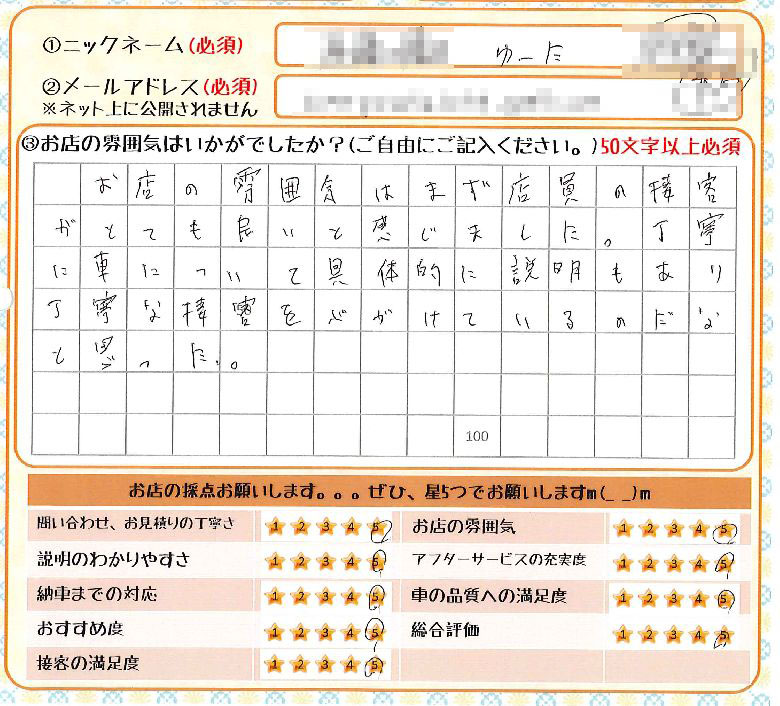 ①ニックネーム(必須)
ゆーた
②メールアドレス(必須)
※ネット上に公開されません
③お店の雰囲気はいかがでしたか？(ご自由にご記入ください。)50文字以上必須
お店の雰囲気はまず店員の接客
がとても良いと感じました。丁寧
に車について具体的に説明もあり
丁寧な接客を心がけているのだな
と思った。
100
お店の採点お願いします。。。ぜひ、星5つでお願いしますm(_ _)m
問い合わせ、お見積りの丁寧さ 1 2 3 4 5 お店の雰囲気 1 2 3 4 5
説明のわかりやすさ 1 2 3 4 5 アフターサービスの充実度 1 2 3 4 5
納車までの対応 1 2 3 4 5 車の品質への満足度 1 2 3 4 5
おすすめ度 1 2 3 4 5 総合評価 1 2 3 4 5
接客の満足度 1 2 3 4 5